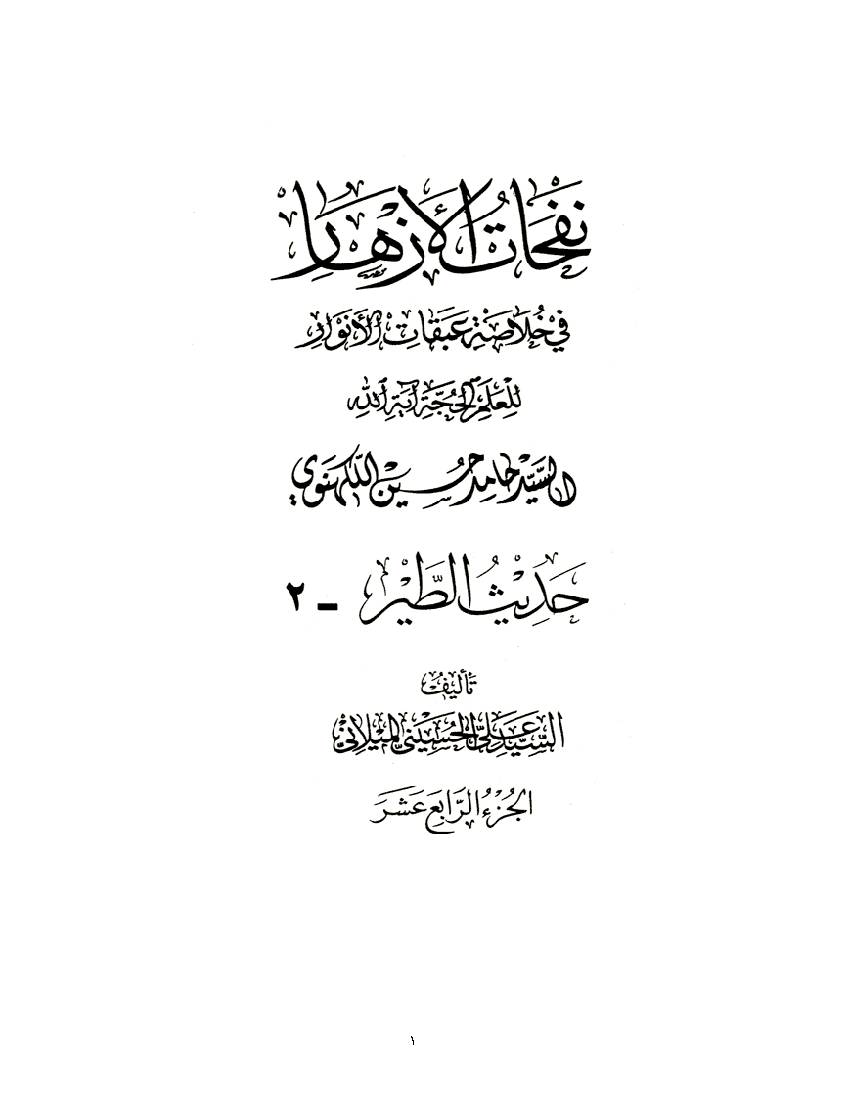 نَفَحَاتُ الْأَزْهَارِ
فِي خُلَاصَةِ عَبَقَاتِ الْأَنْوَارِ
لِلْعَلَمِ الْحُجَّةِ آيَةِ اللهِ
السَّيِّد حَامِد حُسَيْن اللَّكْهنَوِي
حَدِيثُ الطَّيْر - ٢
تَأْلِيفُ
السَّيِّد عَلِيّ الْحُسَيْنِيّ الْمِيلَانِيّ
الْجُزْءُ الرَّابِعَ عَشَرَ
١